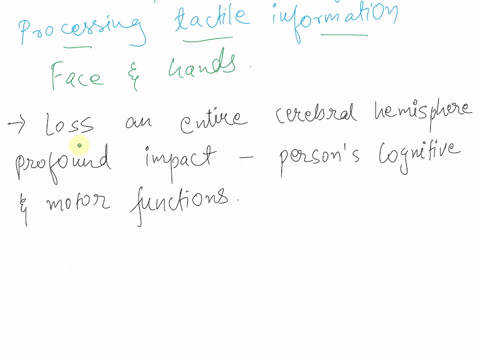 Processing tactile information
Face & hands.
→ Loss an entire cerebral hemisphere
profound impact – person's Cognitive
& motor functions.